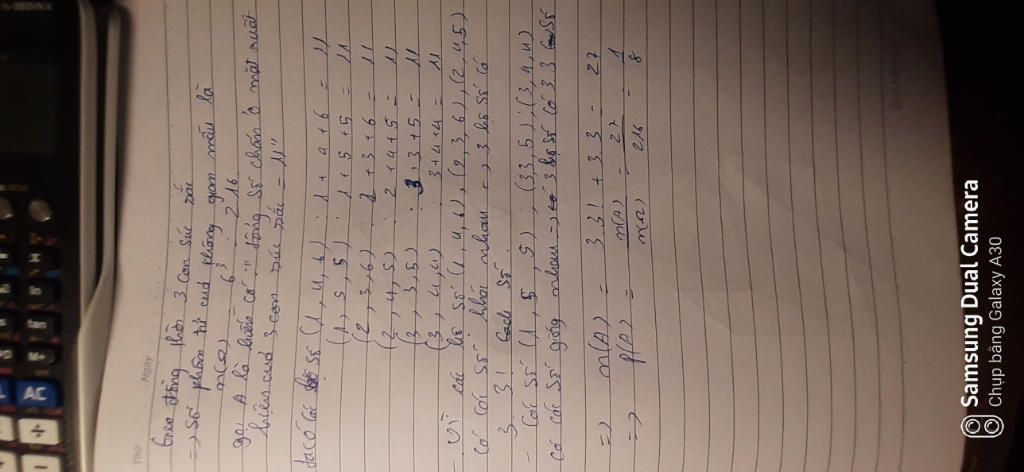 Gieo đồng thời 3 con súc sắc
=> số phần tử của không gian mẫu là
n(Ω) = 6³ = 216
gọi A là biến cố "tổng số chấm ở mặt xuất
hiện của 3 con súc sắc = 11"
ta có các bộ số (1, 4, 6) : 1 + 4 + 6 = 11
(1, 5, 5) : 1 + 5 + 5 = 11
(2, 3, 6) : 2 + 3 + 6 = 11
(2, 4, 5) : 2 + 4 + 5 = 11
(3, 3, 5) : 3 + 3 + 5 = 11
(3, 4, 4) : 3 + 4 + 4 = 11
- Vì các bộ số (1, 4, 6), (2, 3, 6), (2, 4, 5)
có các số khác nhau => 3 bộ số có
3.3! số.
- Các số (1, 5, 5), (3, 3, 5), (3, 4, 4)
có các số giống nhau => 3 bộ số có 3.3 số
=> n(A) = 3.3! + 3.3 = 27
=> P(A) = n(A)/n(Ω) = 27/216 = 1/8
Thứ
Ngày
AC
M+
tan
ln
x
÷
+
Samsung Dual Camera
Chụp bằng Galaxy A30